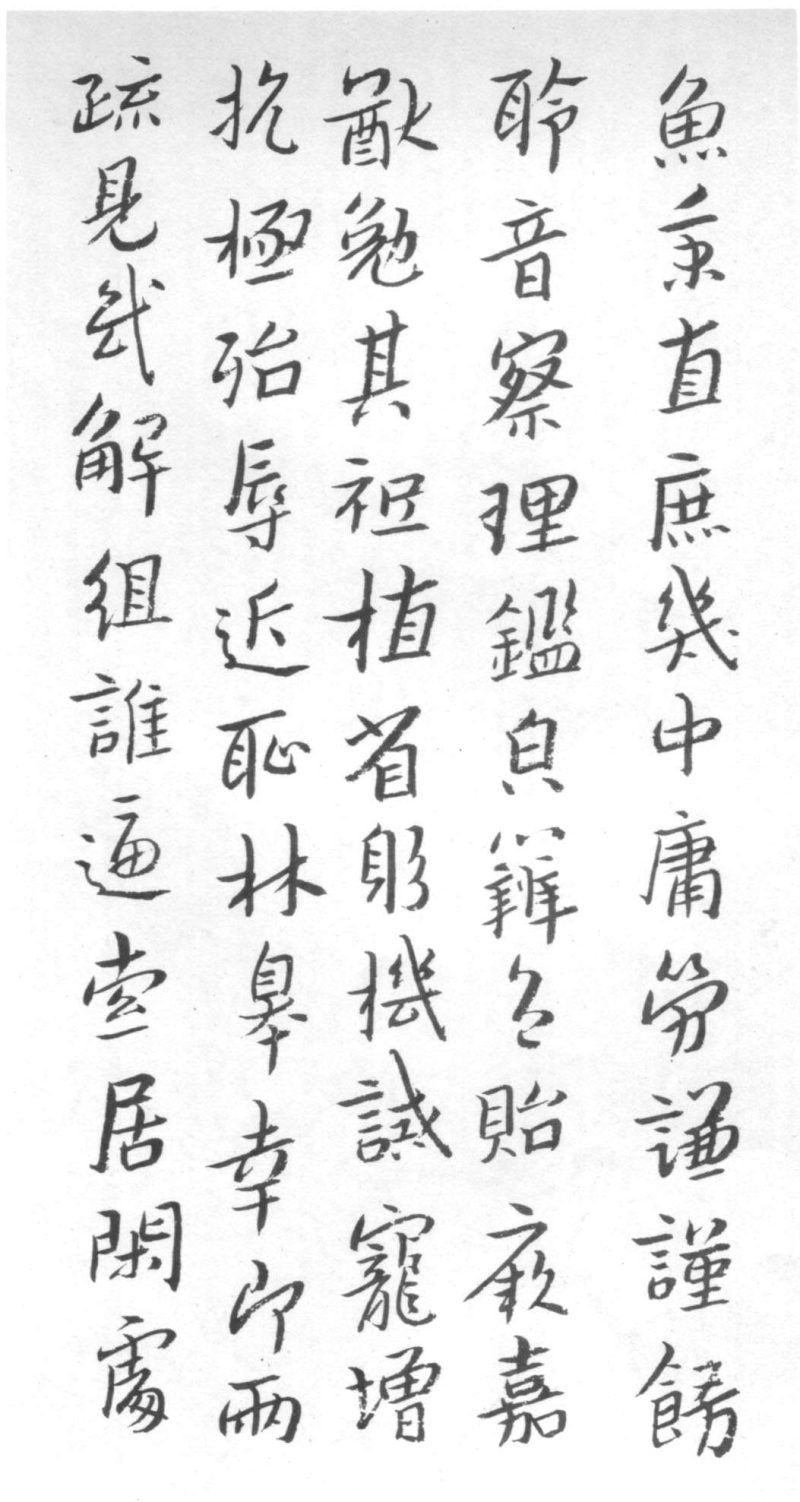 魚秉直庶幾中庸勞謙謹勅
聆音察理鑑皃辯色貽厥嘉
猷勉其祗植省躬機誡寵增
抗極殆辱近恥林皋幸即兩
疏見機解組誰逼索居閑處